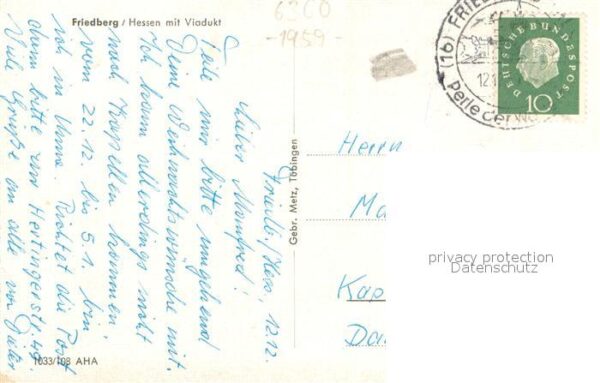 Friedberg / Hessen mit Viadukt
6360
-1959-
Friedb./Hess., 12.12.
Lieber Manfred!
Teile mir bitte umgehend
Deine Weihnachtswünsche mit.
Ich komm allerdings nicht
nach Kapellen kommen.
vom 22.12. bis 5.1. bin
ich in Unna. Richtet die Post
dann bitte zur Hertingerstr. 49.
Viele Grüße an alle von Dieter
1033/108 AHA
Gebr. Metz, Tübingen
(16) FRIED
12.1
Perle der W
DEUTSCHE BUNDESPOST
10
Herrn
Ma
Kap
Da
privacy protection
Datenschutz